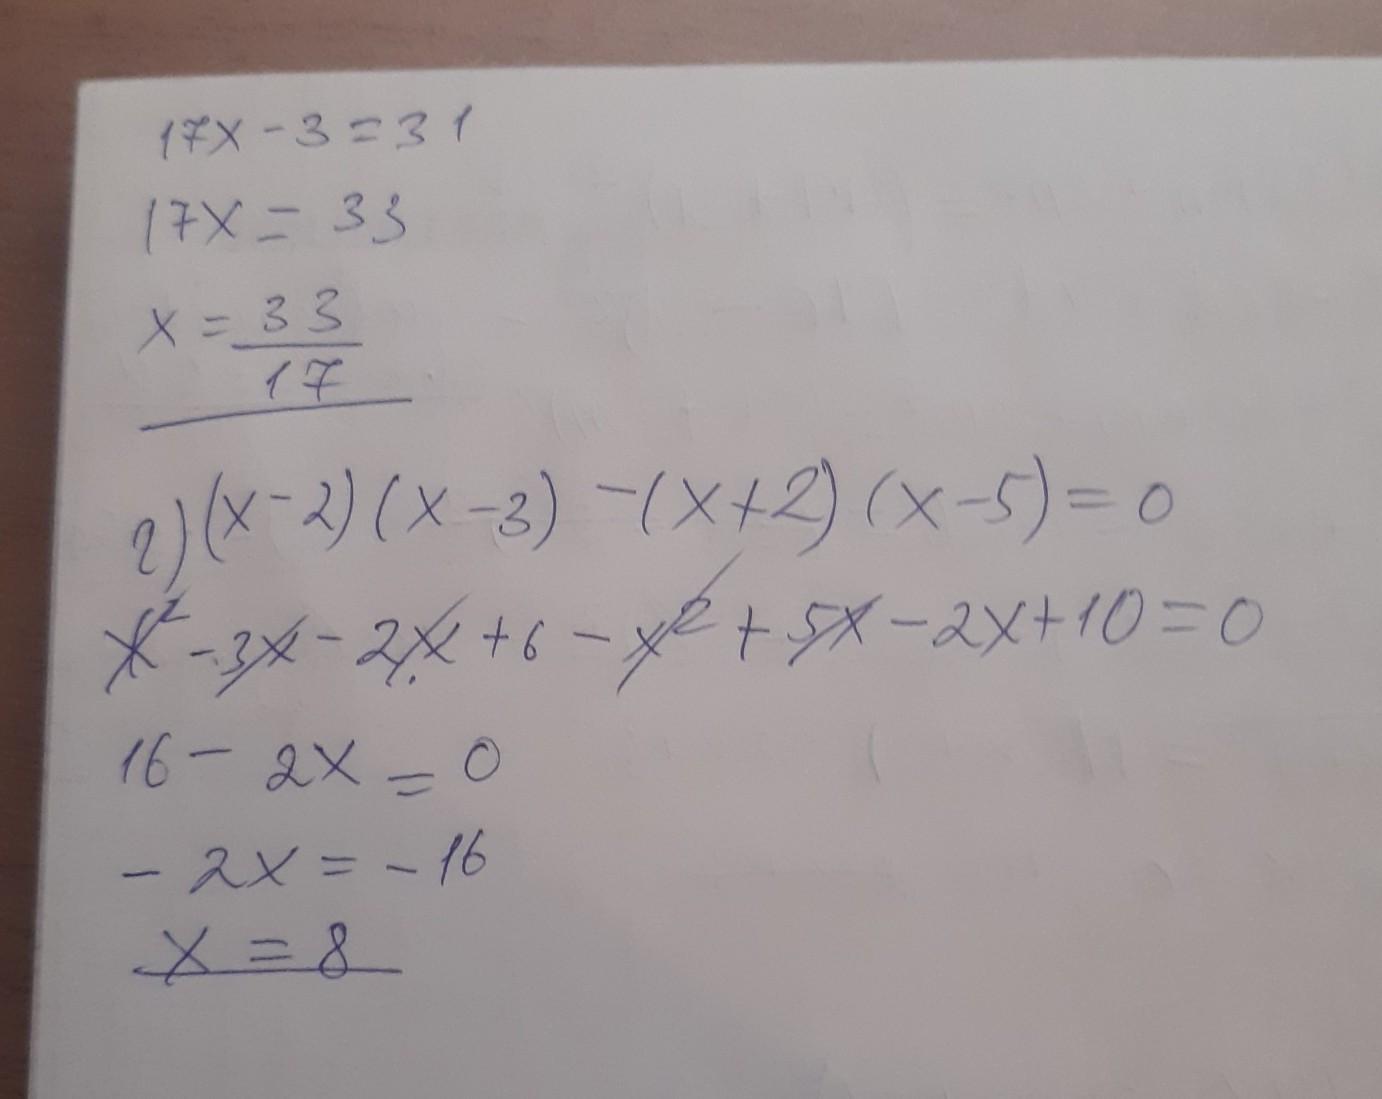 17x - 3 = 31
17x = 33
x = 33/17
г) (x - 2) (x - 3) - (x + 2) (x - 5) = 0
x² - 3x - 2x + 6 - x² + 5x - 2x + 10 = 0
16 - 2x = 0
- 2x = - 16
x = 8